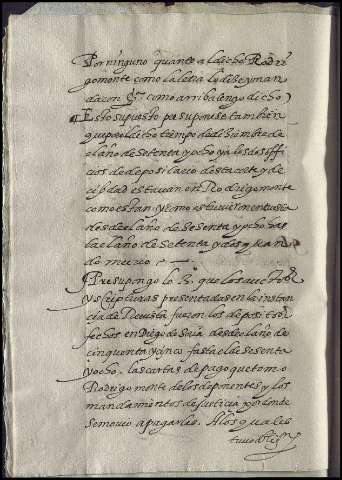 Por ninguno quanto al dicho Rodri
gomonte como la letra lo dize y man
da con como arriba tengo dicho
Esto supuesto presupone se tambien
que por el dicho tiempo de diziembre de
el año de setenta y ocho ya los dos offi
cios de depositario desta corte y de
cibdad estavan en Rodrigo monte
como estan y como estuvieron entrambos
desde el año de sesenta y ocho has
ta el año de setenta y dos que an
de nuevo
Presupongo lo 3º que los auctos
y scripturas presentadas en la instan
cia de Revista fueron los depositos
fechos en Diego de Soria desde el año de
cinquenta y cinco fasta el de sesenta
y ocho. las cartas de pago que tomo
Rodrigo monte de los deponentes y los
mandamientos de justicia por donde
se movio a pagarles. A los quales
tuvo